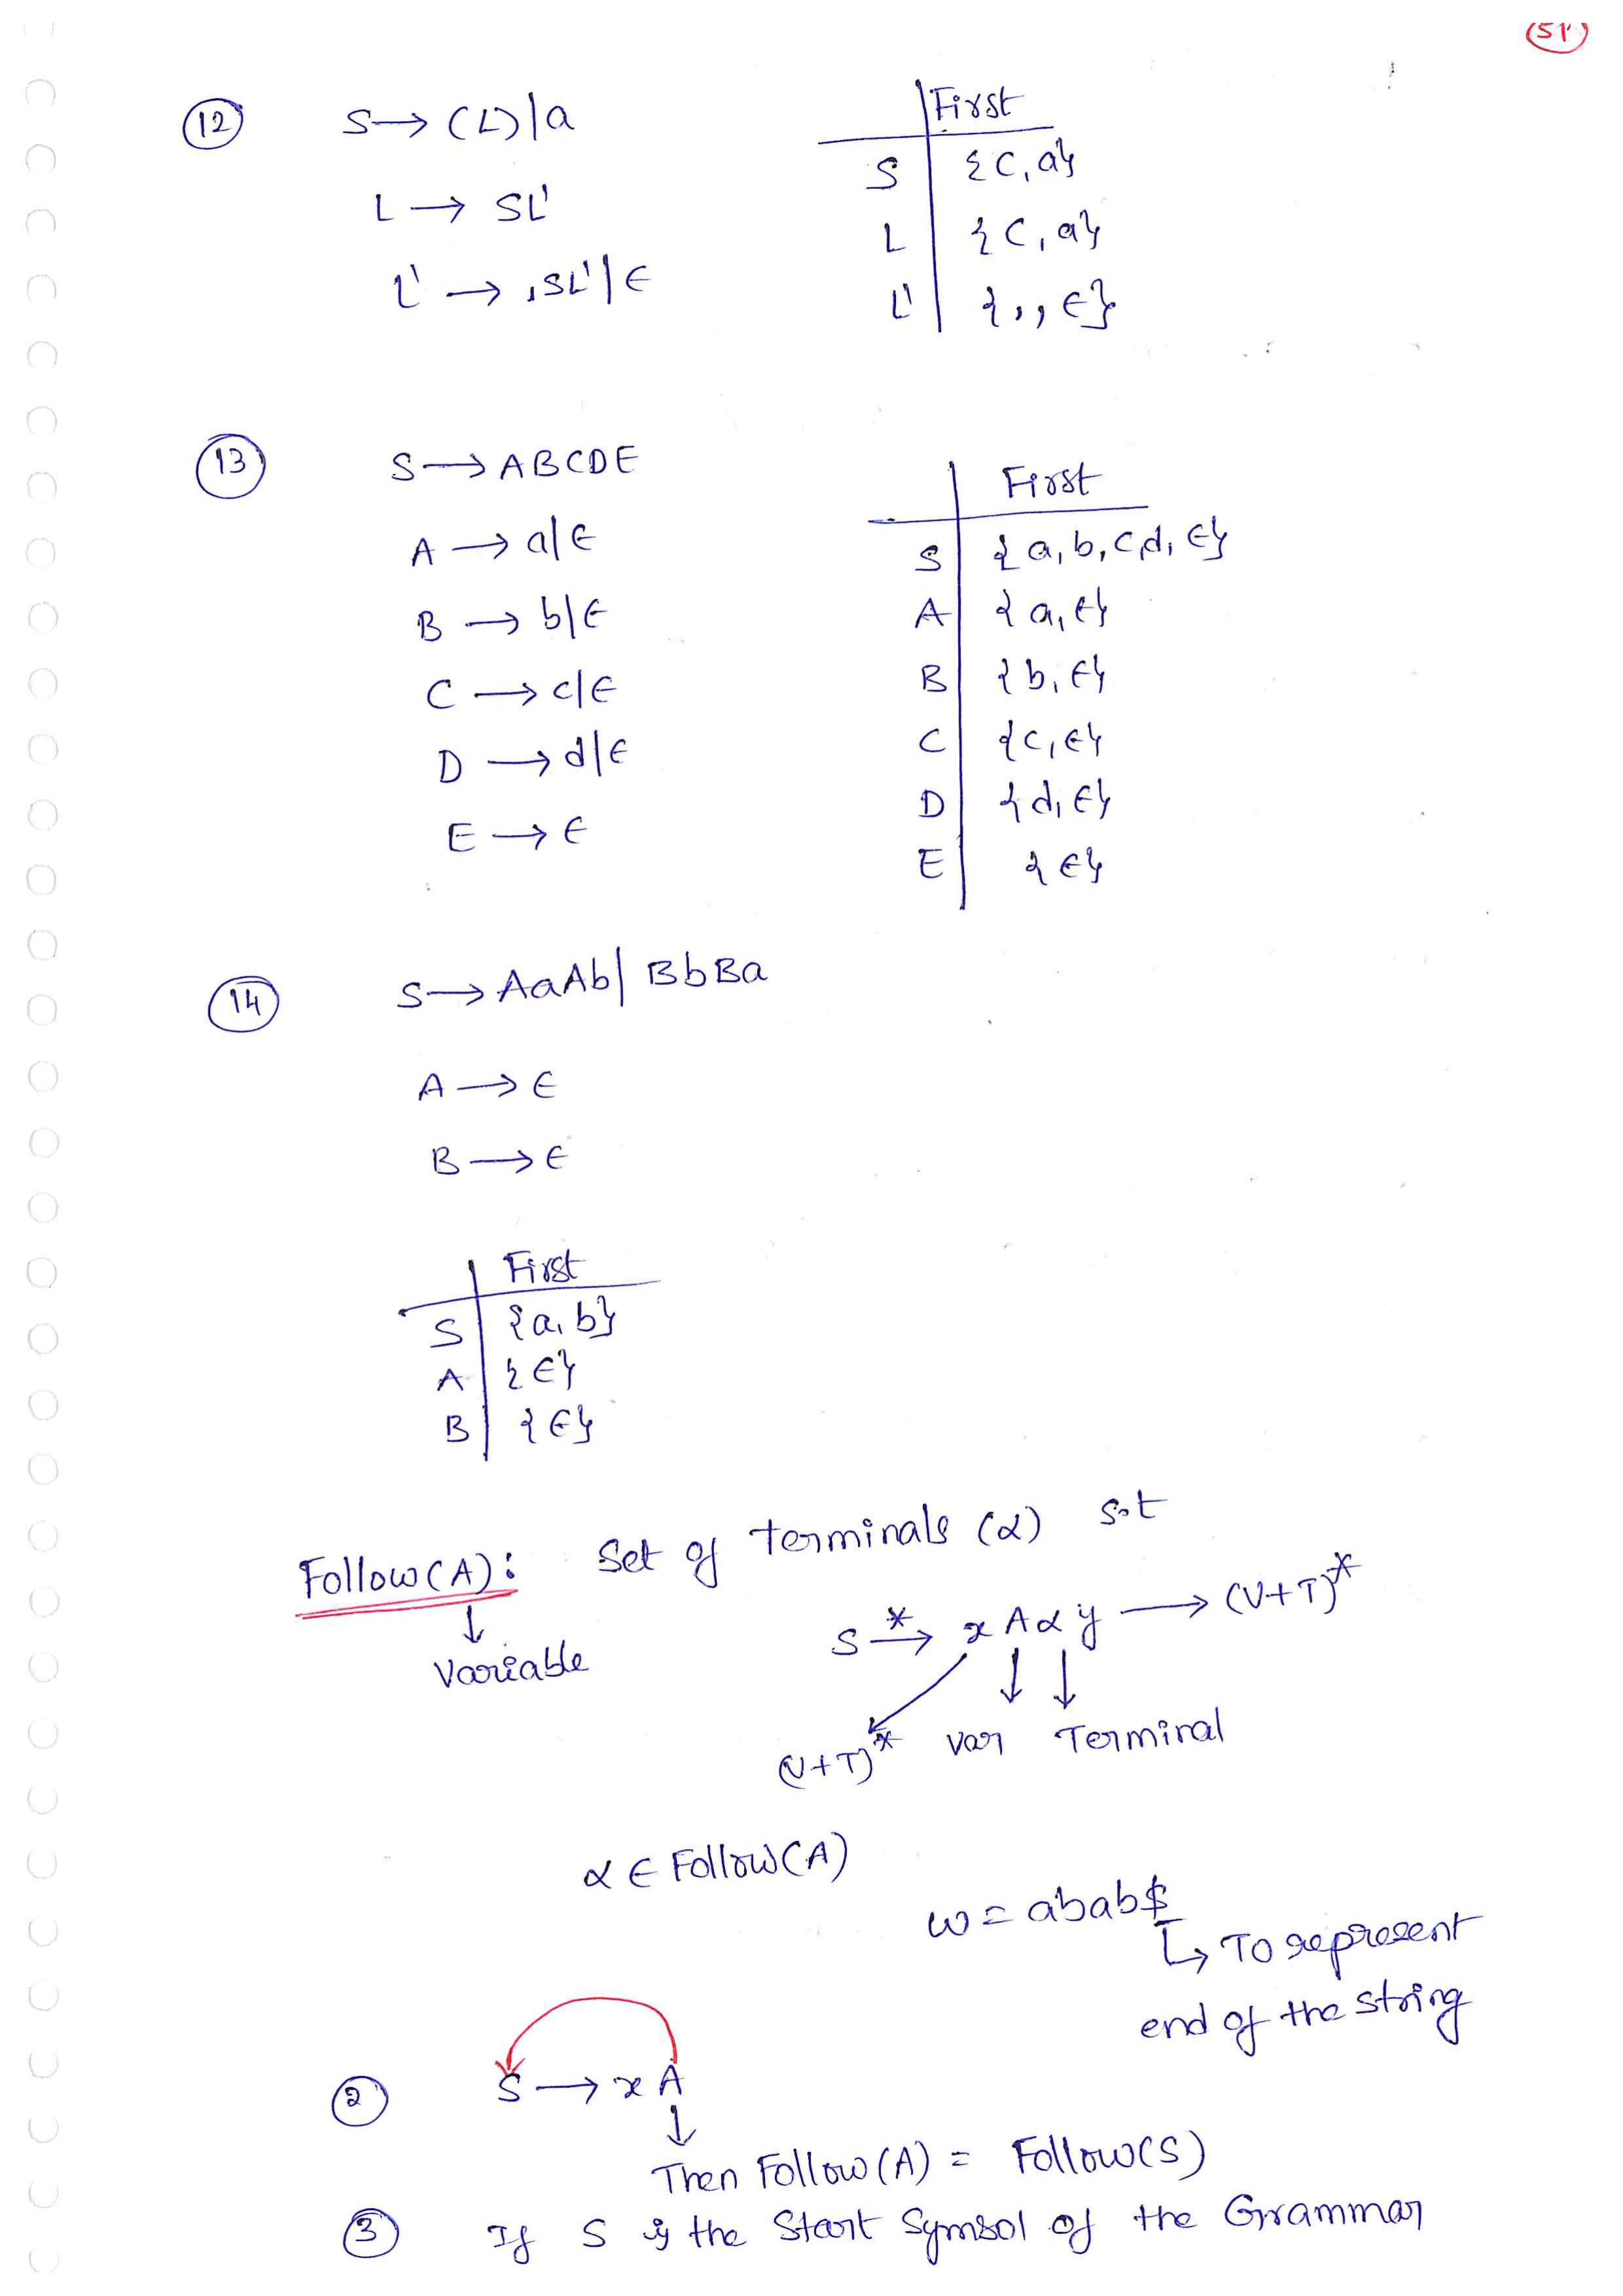 51
12 S → (L) | a
L → SL'
L' → ,SL' | ∈
First
S {(, a}
L {(, a}
L' {,, ∈}
13 S → ABCDE
A → a|∈
B → b|∈
C → c|∈
D → d|∈
E → ∈
First
S {a, b, c, d, ∈}
A {a, ∈}
B {b, ∈}
C {c, ∈}
D {d, ∈}
E {∈}
14 S → AaAb | BbBa
A → ∈
B → ∈
First
S {a, b}
A {∈}
B {∈}
Follow(A): Set of terminals (α) s.t
↓
Variable
S *→ x A α y → (V+T)*
(V+T)* Var Terminal
α ∈ Follow(A)
w = abab$
↳ To represent
end of the string
2 S → x A
↓
Then Follow(A) = Follow(S)
3 If S is the Start Symbol of the Grammar